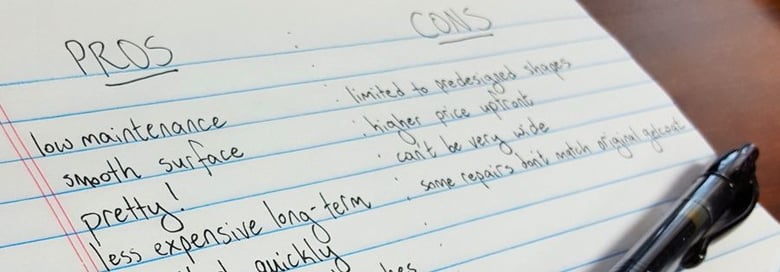 PROS
CONS
low maintenance
smooth surface
pretty!
less expensive long-term
quickly
: limited to predesigned shapes
: higher price upfront
: can't be very wide
: some repairs don't match original gelcoat